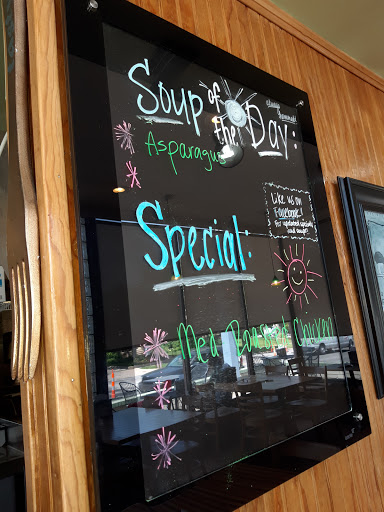 Soup of the Day:
Asparagus
Special:
Like us on
Facebook!
for updated specials
and soups!
Med Roasted Chicken